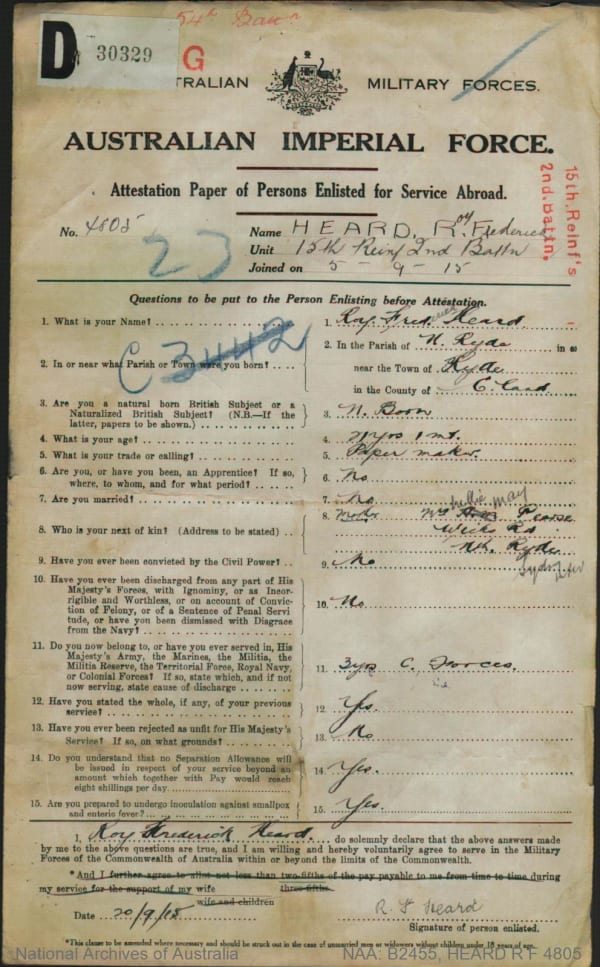 54th Battn
D 30329 G
AUSTRALIAN MILITARY FORCES.
AUSTRALIAN IMPERIAL FORCE.
Attestation Paper of Persons Enlisted for Service Abroad.
15th. Reinf's
2nd. Battn,
No. 4805
23
Name HEARD, Roy Frederick
Unit 15th Reinf 2nd Battn
Joined on 5-9-15
Questions to be put to the Person Enlisting before Attestation.
1. What is your Name? 1. Roy Frederick Heard
C 3442
2. In or near what Parish or Town were you born? 2. In the Parish of N. Ryde in or
near the Town of Ryde
in the County of C. Land
3. Are you a natural born British Subject or a
Naturalized British Subject? (N.B.—If the
latter, papers to be shown.) 3. N. Born
4. What is your age? 4. yrs 1 mt.
5. What is your trade or calling? 5. Paper maker.
6. Are you, or have you been, an Apprentice? If so,
where, to whom, and for what period? 6. No
7. Are you married? 7. No
8. Who is your next of kin? (Address to be stated) 8. Mother Mrs May Pearse
Rd
Nth. Ryde
9. Have you ever been convicted by the Civil Power? 9. No
10. Have you ever been discharged from any part of His
Majesty's Forces, with Ignominy, or as Incor-
rigible and Worthless, or on account of Convic-
tion of Felony, or of a Sentence of Penal Servi
tude, or have you been dismissed with Disgrace
from the Navy? 10. No
11. Do you now belong to, or have you ever served in, His
Majesty's Army, the Marines, the Militia, the
Militia Reserve, the Territorial Force, Royal Navy,
or Colonial Forces? If so, state which, and if not
now serving, state cause of discharge 11. 3yrs C. Forces.
12. Have you stated the whole, if any, of your previous
service? 12. Yes.
13. Have you ever been rejected as unfit for His Majesty's
Service? If so, on what grounds? 13. No
14. Do you understand that no Separation Allowance will
be issued in respect of your service beyond an
amount which together with Pay would reach
eight shillings per day. 14. Yes.
15. Are you prepared to undergo inoculation against smallpox
and enteric fever? 15. Yes.
I, Roy Frederick Heard. do solemnly declare that the above answers made
by me to the above questions are true, and I am willing and hereby voluntarily agree to serve in the Military
Forces of the Commonwealth of Australia within or beyond the limits of the Commonwealth.
*And I further agree to allot not less than two-fifths of the pay payable to me from time to time during
three-fifths
my service for the support of my wife
wife and children
Date 20/9/15 R F Heard
Signature of person enlisted.
*This clause to be amended where necessary and should be struck out in the case of unmarried men or widowers without children under 18 years of age.
National Archives of Australia NAA: B2455, HEARD R F 4805